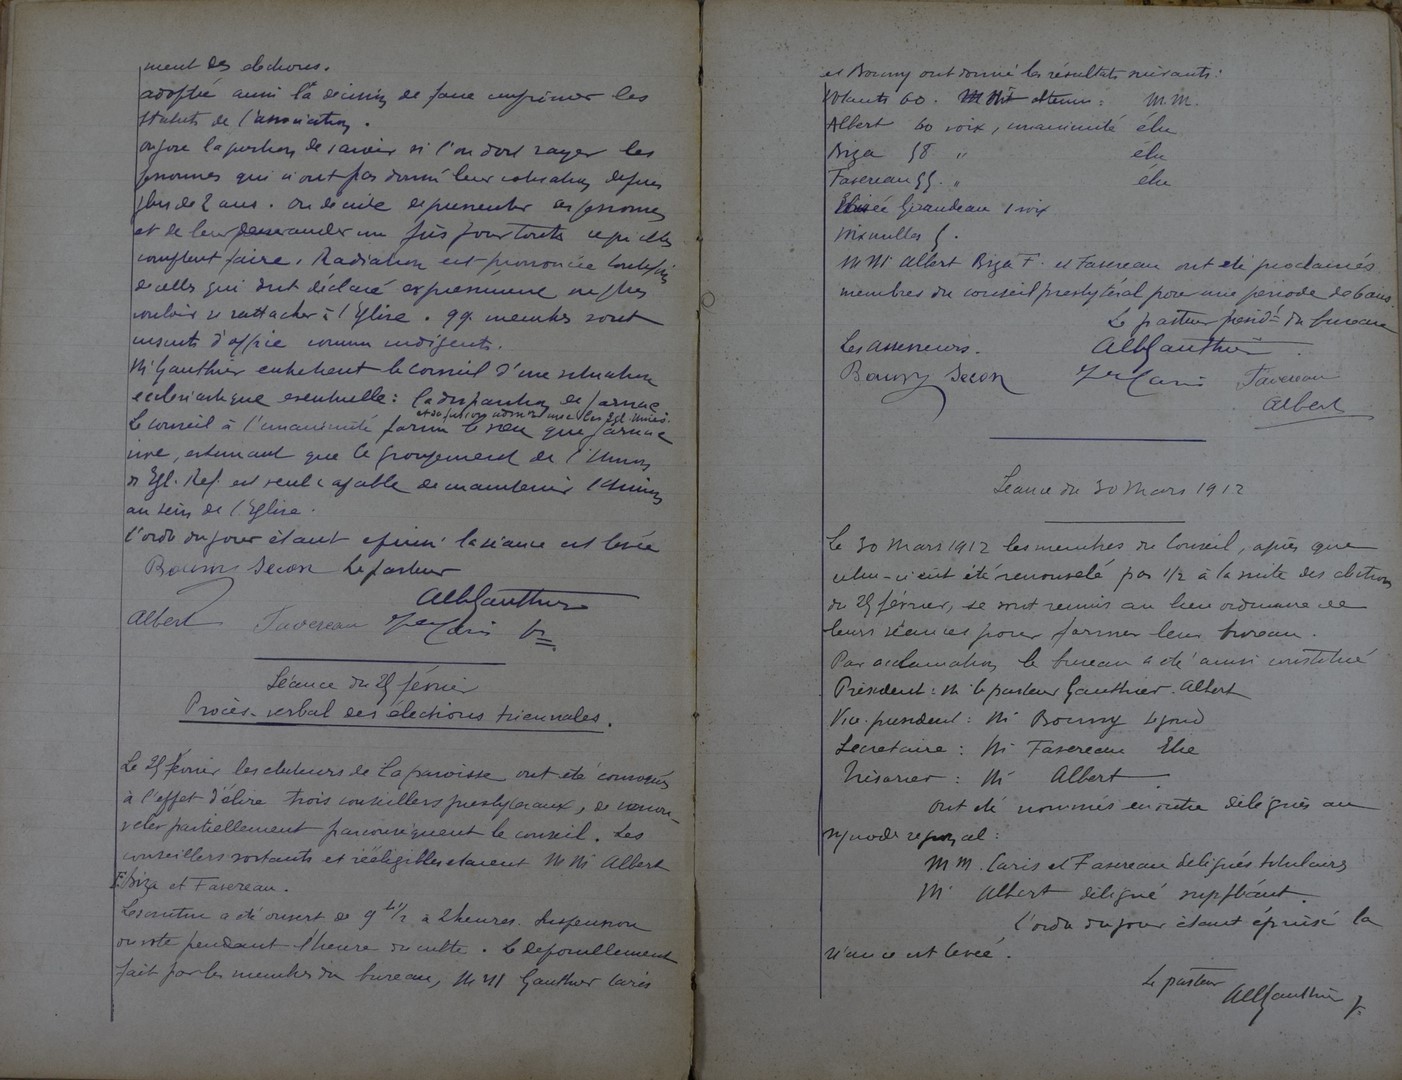 ment des elections.
adopté aussi la décision de faire imprimer les
statuts de l'association.
on pose la question de savoir si l'on doit rayer les
personnes qui n'ont pas donné leur cotisation depuis
plus de 2 ans. On décide de presenter ces personnes
et de leur demander une fois pour toutes ce qu'elles
comptent faire. Radiation est prononcée toutefois
de celles qui ont déclaré expressément ne plus
vouloir se rattacher à l'Eglise. 99 membres sont
inscrits d'office comme indigents.
Mr Gauthier entretient le conseil d'une situation
ecclésiastique eventuelle: la disparition de Jarnac
et sa fusion avec les Egl. Unies.
Le conseil à l'unanimité forme le vœu que Jarnac
vive, estimant que le groupement de l'Union
d'Egl. Ref. est seul capable de maintenir l'union
au sein de l'Eglise.
l'ordre du jour étant épuisé la séance est levée
Bouny Second Le pasteur
Alb Gauthier
Albert Favereau Caris
Séance du 25 février
Procès-verbal des élections triennales.
Le 25 février les électeurs de la paroisse ont été convoqués
à l'effet d'élire trois conseillers presbytéraux, de renou-
veler partiellement par conséquent le conseil. Les
conseillers sortants et rééligibles étaient MMrs Albert
Biza et Favereau.
Le scrutin a été ouvert de 9 h 1/2 à 2 heures. Suspension
du vote pendant l'heure du culte. Le depouillement
fait par les membres du bureau, MM Gauthier Caris
et Bouny ont donné les résultats suivants:
Votants 60. Ont obtenu: M.M.
Albert 60 voix, unanimité élu
Biza 58 " élu
Favereau 55. " élu
Elisée Girandeau 1 voix
Nulles 5.
MMrs Albert Biza F. et Favereau ont été proclamés
membres du conseil presbytéral pour une période de 6 ans.
Le pasteur présidt du bureau
Les assesseurs. Alb Gauthier
Bouny Second Caris Favereau
Albert
Séance du 30 Mars 1912
Le 30 Mars 1912 les membres du Conseil, après que
celui-ci eut été renouvelé par 1/2 à la suite des élections
du 25 février, se sont reunis au lieu ordinaire de
leurs séances pour former leur bureau.
Par acclamation le bureau a été ainsi constitué
Président: Mr le pasteur Gauthier-Albert
Vice-président: Mr Bouny Second
Secretaire: Mr Favereau Elie
Trésorier: Mr Albert
ont été nommés en outre délégués au
synode régional:
MM. Caris et Favereau délégués titulaires
Mr Albert délégué suppléant.
L'ordre du jour étant épuisé la
séance est levée.
Le pasteur
Alb Gauthier